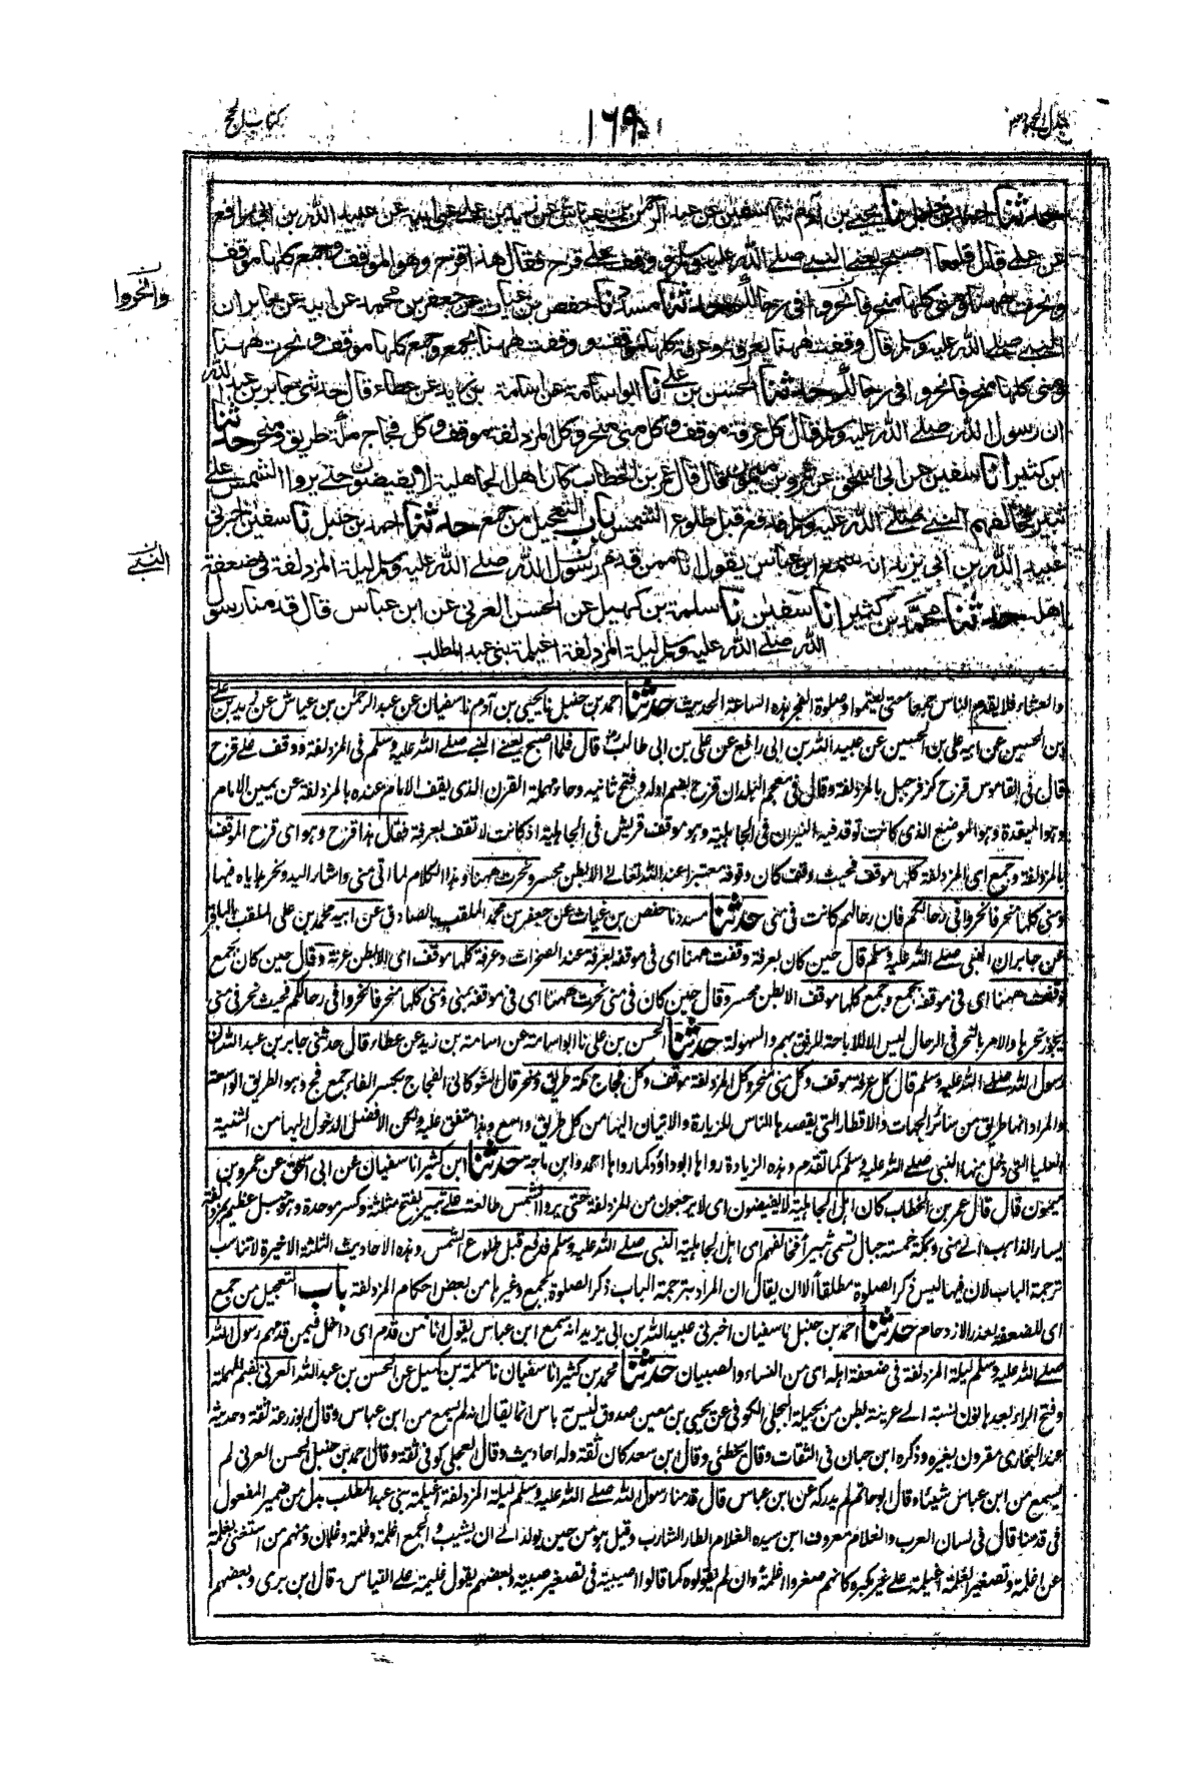 بذل المجهود ١٦٩ كتاب الحج
حدثنا احمد بن حنبل نا يحيى بن آدم نا سفين عن عبد الرحمن بن عياش عن زيد بن علي عن ابيه عن عبيد الله بن ابي رافع
عن علي قال فلما اصبح يعني النبي صلے الله عليه وسلم ووقف علے قزح فقال هذا قزح وهو الموقف وجمع كلها موقف
ونحرت ههنا ومنى كلها منحر فانحروا في رحالكم حدثنا مسدد نا حفص بن غياث عن جعفر بن محمد عن ابيه عن جابر ان
وانحروا
النبي صلے الله عليه وسلم قال وقفت ههنا بعرفة وعرفة كلها موقف ووقفت ههنا بجمع وجمع كلها موقف ونحرت ههنا
ومنى كلها منحر فانحروا في رحالكم حدثنا الحسن بن علي نا ابو اسامة عن اسامة بن زيد عن عطاء قال حدثني جابر بن عبد الله
ان رسول الله صلے الله عليه وسلم قال كل عرفة موقف وكل منى منحر وكل المزدلفة موقف وكل فجاج مكة طريق ومنحر حدثنا
ابن كثير انا سفين عن ابي اسحق عن عمرو بن ميمون قال قال عمر بن الخطاب كان اهل الجاهلية لا يفيضون حتے يروا الشمس علے
ثبير فخالفهم النبي صلے الله عليه وسلم فدفع قبل طلوع الشمس باب التعجيل من جمع حدثنا احمد بن حنبل نا سفين اخبرني
النبي
عبيد الله بن ابي يزيد انه سمع ابن عباس يقول انا ممن قدم رسول الله صلے الله عليه وسلم ليلة المزدلفة في ضعفة
اهله حدثنا محمد بن كثير انا سفين نا سلمة بن كهيل عن الحسن العرني عن ابن عباس قال قدمنا رسول
الله صلے الله عليه وسلم ليلة المزدلفة اغيلمة بني عبد المطلب
والعشاء فلا يقدم الناس جمعا حتى يعتموا وصلوة الفجر هذه الساعة الحديث حدثنا احمد بن حنبل نا يحيى بن آدم نا سفيان عن عبد الرحمن بن عياش عن زيد بن علي
بن الحسين عن ابيه علي بن الحسين عن عبيد الله بن ابي رافع عن علي بن ابي طالب قال فلما اصبح يعني النبي صلے الله عليه وسلم في المزدلفة ووقف علے قزح
قال في القاموس قزح كزفر جبل بالمزدلفة وقال في معجم البلدان قزح بضم اوله وفتح ثانيه وحاء مهملة القرن الذي يقف الامام عنده بالمزدلفة عن يمين الامام
وهو الميقدة وهو الموضع الذي كانت توقد فيه النيران في الجاهلية وهو موقف قريش في الجاهلية اذ كانت لا تقف بعرفة فقال هذا قزح وهو اي قزح الموقف
بالمزدلفة وجمع اي المزدلفة كلها موقف فحيث وقف كان وقوفه معتبرا عند الله تعالے الا بطن محسر ونحرت ههنا وهذا الكلام لما اتى منى واشار اليه ونحر هداياه فيها
ومنى كلها منحر فانحروا في رحالكم فان رحالهم كانت في منى حدثنا مسدد نا حفص بن غياث عن جعفر بن محمد الملقب بالصادق عن ابيه محمد بن علي الملقب بالباقر
عن جابر ان النبي صلے الله عليه وسلم قال حين كان بعرفة وقفت ههنا اي في موقفه بعرفة عند الصخرات وعرفة كلها موقف اي الا بطن عرنة وقال حين كان بجمع
وقفت ههنا اي في موقفه بجمع وجمع كلها موقف الا بطن محسر وقال حين كان في منى نحرت ههنا اي في موقفه بمنى ومنى كلها منحر فانحروا في رحالكم فحيث نحر في منى
يجوز نحرها والامر بالنحر في الرحال ليس الا للاباحة للرفق بهم والسهولة حدثنا الحسن بن علي نا ابو اسامة عن اسامة بن زيد عن عطاء قال حدثني جابر بن عبد الله ان
رسول الله صلے الله عليه وسلم قال كل عرفة موقف وكل منى منحر وكل المزدلفة موقف وكل فجاج مكة طريق ومنحر قال الشوكاني الفجاج بكسر الفاء جمع فج وهو الطريق الواسعة
والمراد انها طريق من سائر الجهات والاقطار التي يقصدها الناس للزيارة والاتيان اليها من كل طريق واسع وهذا متفق عليه ولكن الافضل الدخول اليها من الثنية
العليا التي دخل منها النبي صلے الله عليه وسلم كما تقدم وهذه الزيادة رواها ابو داؤد كما رواها احمد وابن ماجه حدثنا ابن كثير انا سفيان عن ابي اسحق عن عمرو بن
ميمون قال قال عمر بن الخطاب كان اهل الجاهلية لا يفيضون اي لا يرجعون من المزدلفة حتى يروا الشمس طالعة علے ثبير بفتح مثلثة وكسر موحدة وهو جبل عظيم بمزدلفة
يسار الذاهب الے منى وبمكة خمسة جبال تسمى ثبيرا فخالفهم اي اهل الجاهلية النبي صلے الله عليه وسلم فدفع قبل طلوع الشمس وهذه الاحاديث الثلثة الاخيرة لا تناسب
ترجمة الباب لان فيها ليس ذكر الصلوة مطلقا الا ان يقال ان المراد بترجمة الباب ذكر الصلوة بجمع وغيرها من بعض احكام المزدلفة باب التعجيل من جمع
اي للضعفة بعذر الازدحام حدثنا احمد بن حنبل نا سفيان اخبرني عبيد الله بن ابي يزيد انه سمع ابن عباس يقول انا ممن قدم اي داخل فيمن قدمهم رسول الله
صلے الله عليه وسلم ليلة المزدلفة في ضعفة اهله اي من النساء والصبيان حدثنا محمد بن كثير انا سفيان نا سلمة بن كهيل عن الحسن بن عبد الله العرني بضم المهملة
وفتح الراء بعدها نون نسبة الے عرينة بطن من بجيلة البجلي الكوفي عن يحيى بن معين صدوق ليس به باس انما يقال انه لم يسمع من ابن عباس وقال ابو زرعة ثقة وحديثه
عند البخاري مقرون بغيره وذكره ابن حبان في الثقات وقال يخطئ وقال ابن سعد كان ثقة وله احاديث وقال العجلي كوفي ثقة وقال احمد بن حنبل الحسن العرني لم
يسمع من ابن عباس شيئا وقال ابو حاتم لم يدركه عن ابن عباس قال قدمنا رسول الله صلے الله عليه وسلم ليلة المزدلفة اغيلمة بني عبد المطلب بدل من ضمير المفعول
في قدمنا قال في لسان العرب والغلام معروف ابن سيده الغلام الطار الشارب وقيل هو من حين يولد الے ان يشيب والجمع اغلمة وغلمة وغلمان ومنهم من استغنى بغلمة
عن اغلمة وتصغير الغلمة اغيلمة علے غير مكبره كانهم صغروا اغلمة وان لم يقولوه كما قالوا اصيبية في تصغير صبية وبعضهم يقول غليمة علے القياس۔ قال ابن بري وبعضهم